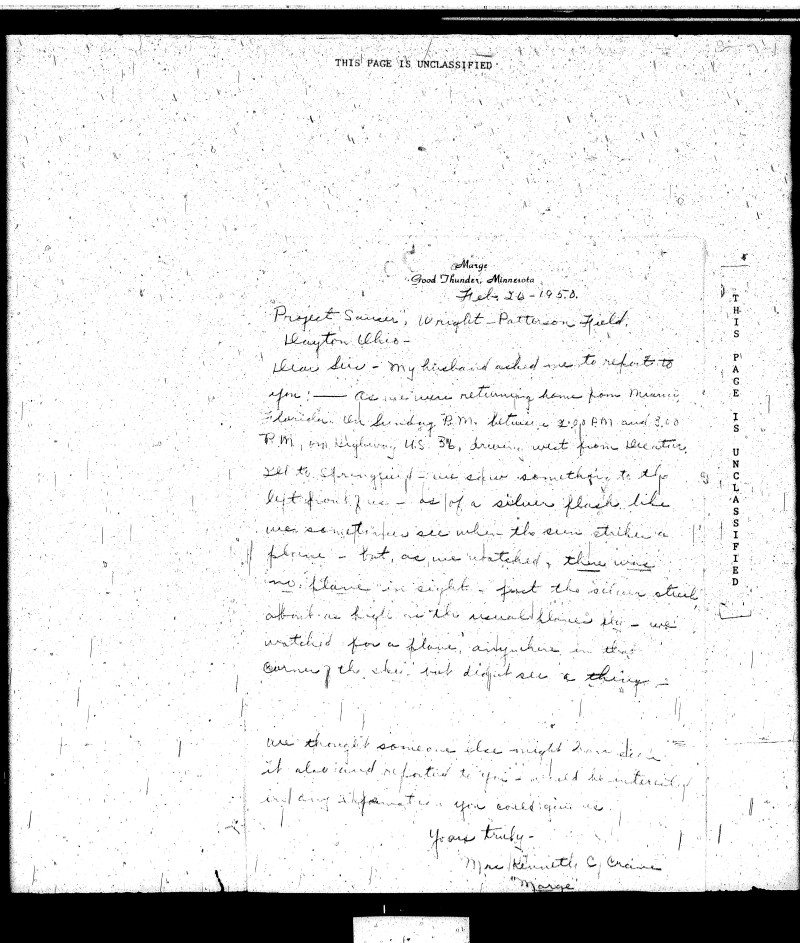 THIS PAGE IS UNCLASSIFIED
Marge
Good Thunder, Minnesota
Feb. 26-1950.
"Project Saucer", Wright-Patterson Field,
Dayton Ohio-
Dear Sir - My husband asked me to report to
you: — As we were returning home from Miami,
Florida. On Sunday P.M. between 2:00 P.M and 3:00
P.M, on Highway U.S. 36, driving west from Decatur,
Ill to Springfield - we saw something to the
left front of us - as if a silver flash like
we sometimes see when the sun strikes a
plane - but, as we watched, there was
no plane in sight - just the silver streak
about as high as the usual planes fly - we
watched for a plane, anywhere in that
corner of the sky, but didn't see a thing -
we thought someone else might have seen
it also and reported to you - would be interested
in any information you could give us.
Yours truly-
Mrs Kenneth C,
"Marge"
THIS PAGE IS UNCLASSIFIED